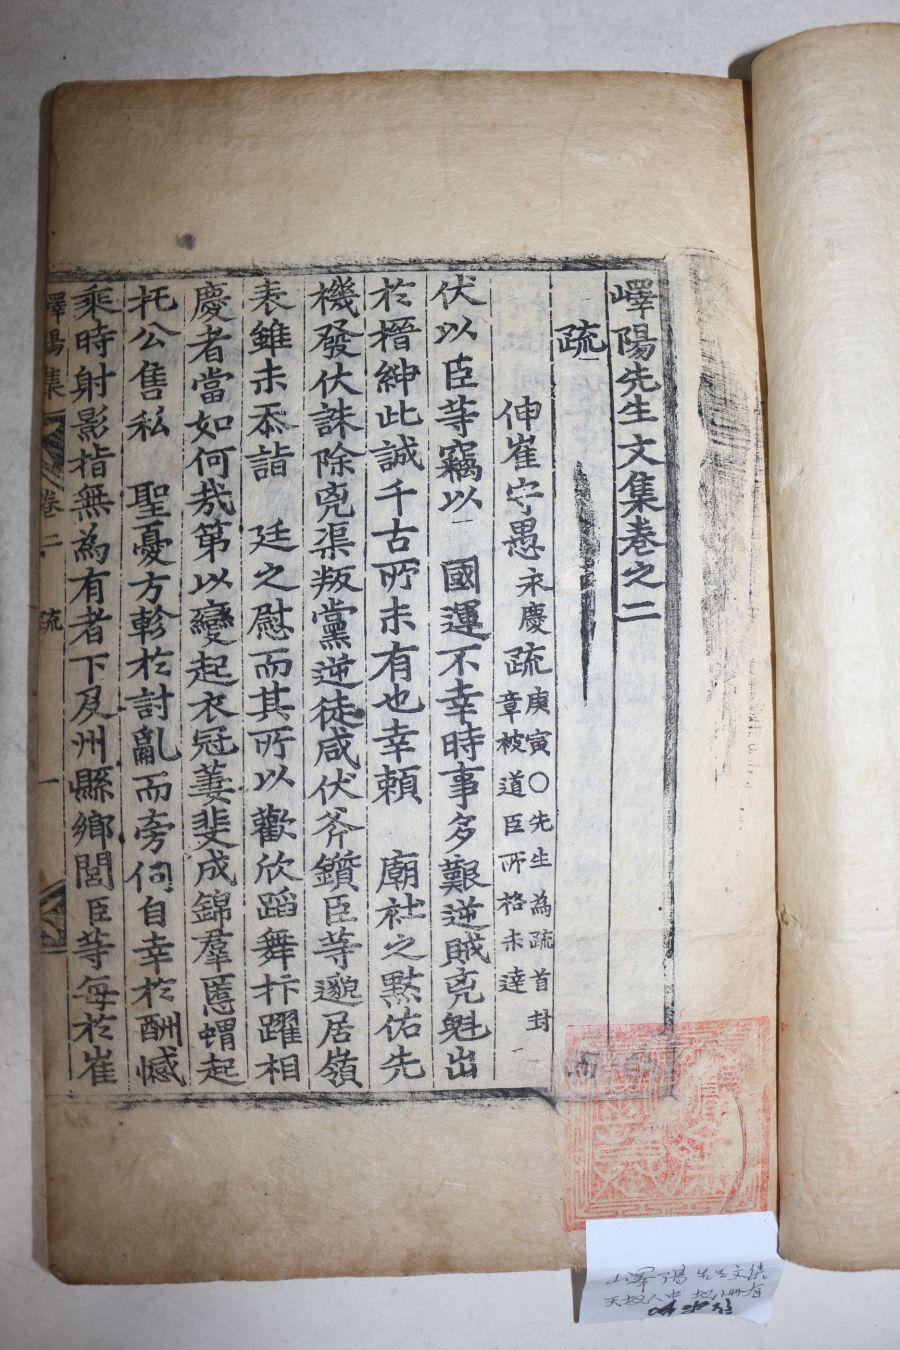 嶧陽先生文集卷之二
疏
伸崔守愚永慶疏 庚寅〇先生為疏首封
章被道臣所格未達
伏以臣等竊以 國運不幸時事多艱逆賊兇魁出
於搢紳此誠千古所未有也幸賴 廟社之黙佑先
機發伏誅除兇渠叛黨逆徒咸伏斧鑕臣等邈居嶺
表雖未忝詣 廷之慰而其所以歡欣蹈舞抃躍相
慶者當如何哉第以變起衣冠萋斐成錦羣慝蝟起
托公售私 聖憂方軫於討亂而旁伺自幸於酬憾
乘時射影指無為有者下及州縣鄉閭臣等每於崔
嶧陽集 卷二 疏 一
嶧陽先生文集